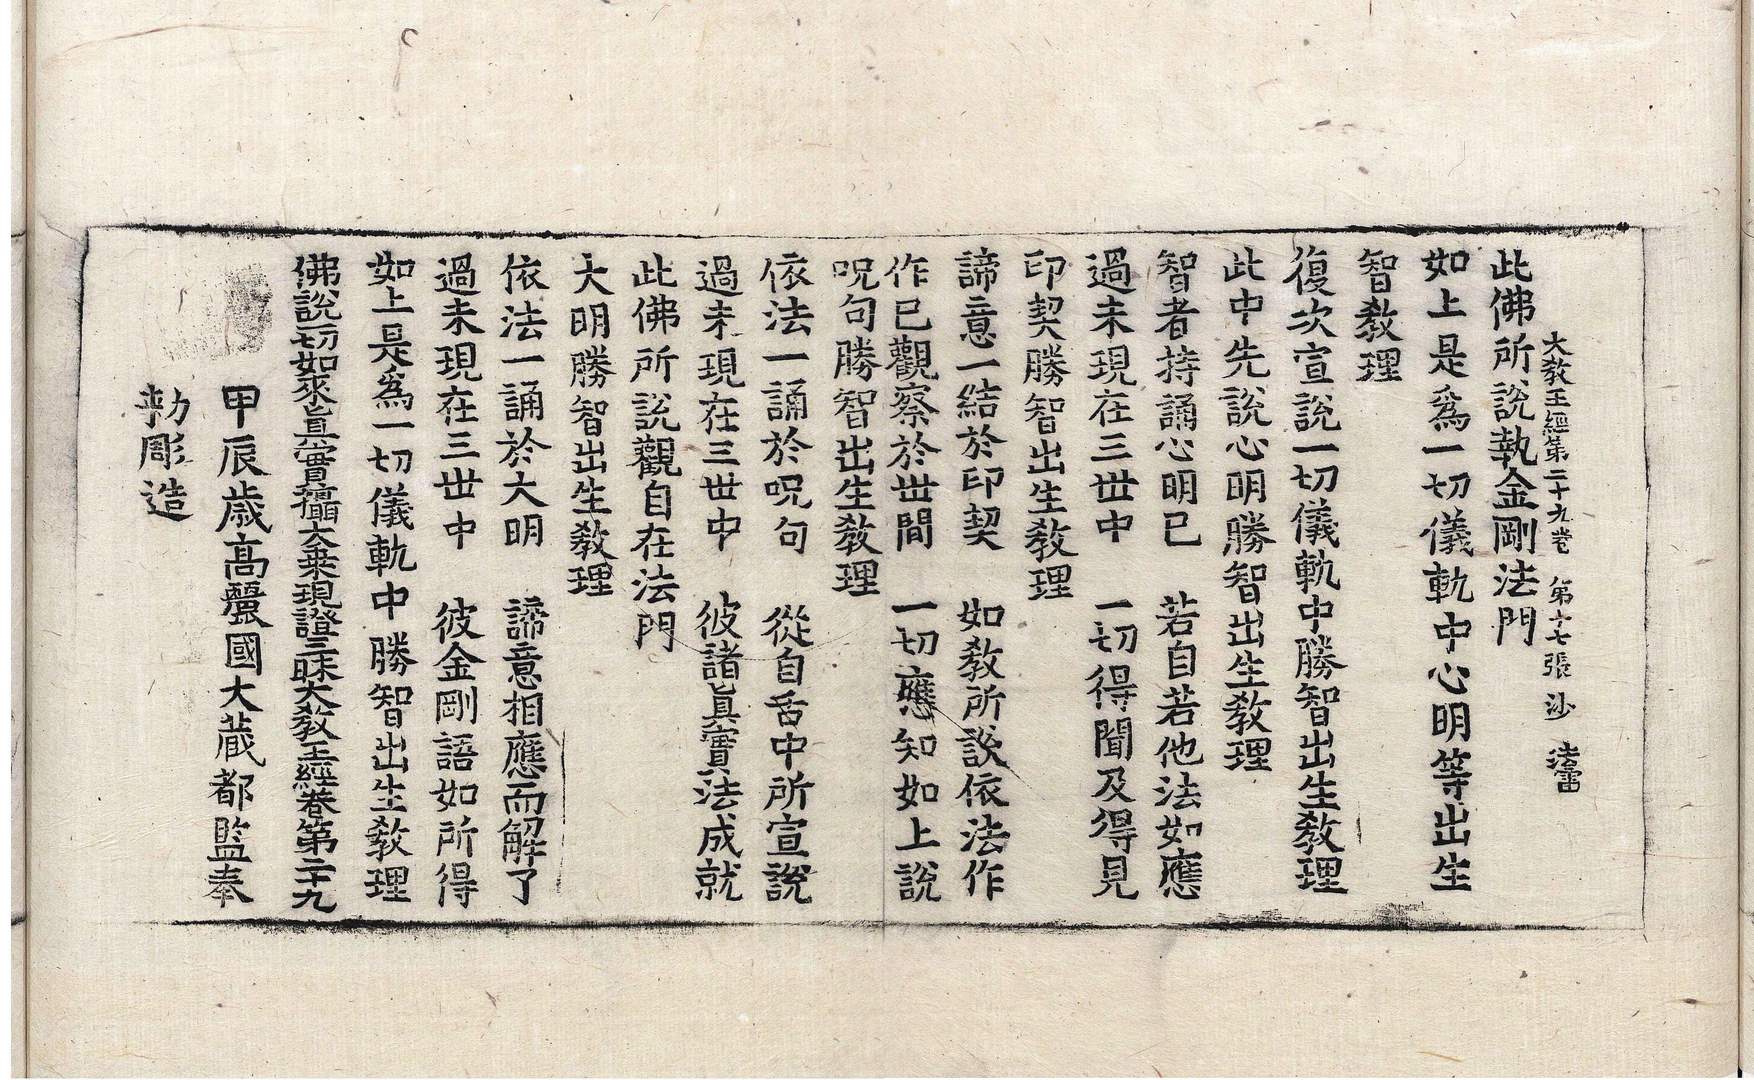 大教王經第二十九卷 第十七張 沙
此佛所說執金剛法門
如上是爲一切儀軌中心明等出生
智教理
復次宣說一切儀軌中勝智出生教理
此中先說心明勝智出生教理
智者持誦心明已 若自若他法如應
過未現在三世中 一切得聞及得見
印契勝智出生教理
諦意一結於印契 如教所說依法作
作已觀察於世間 一切應知如上說
呪句勝智出生教理
依法一誦於呪句 從自舌中所宣說
過未現在三世中 彼諸眞實法成就
此佛所說觀自在法門
大明勝智出生教理
依法一誦於大明 諦意相應而解了
過未現在三世中 彼金剛語如所得
如上是爲一切儀軌中勝智出生教理
佛說一切如來眞實攝大乘現證三昧大教王經卷第二十九
甲辰歲高麗國大藏都監奉
勅彫造